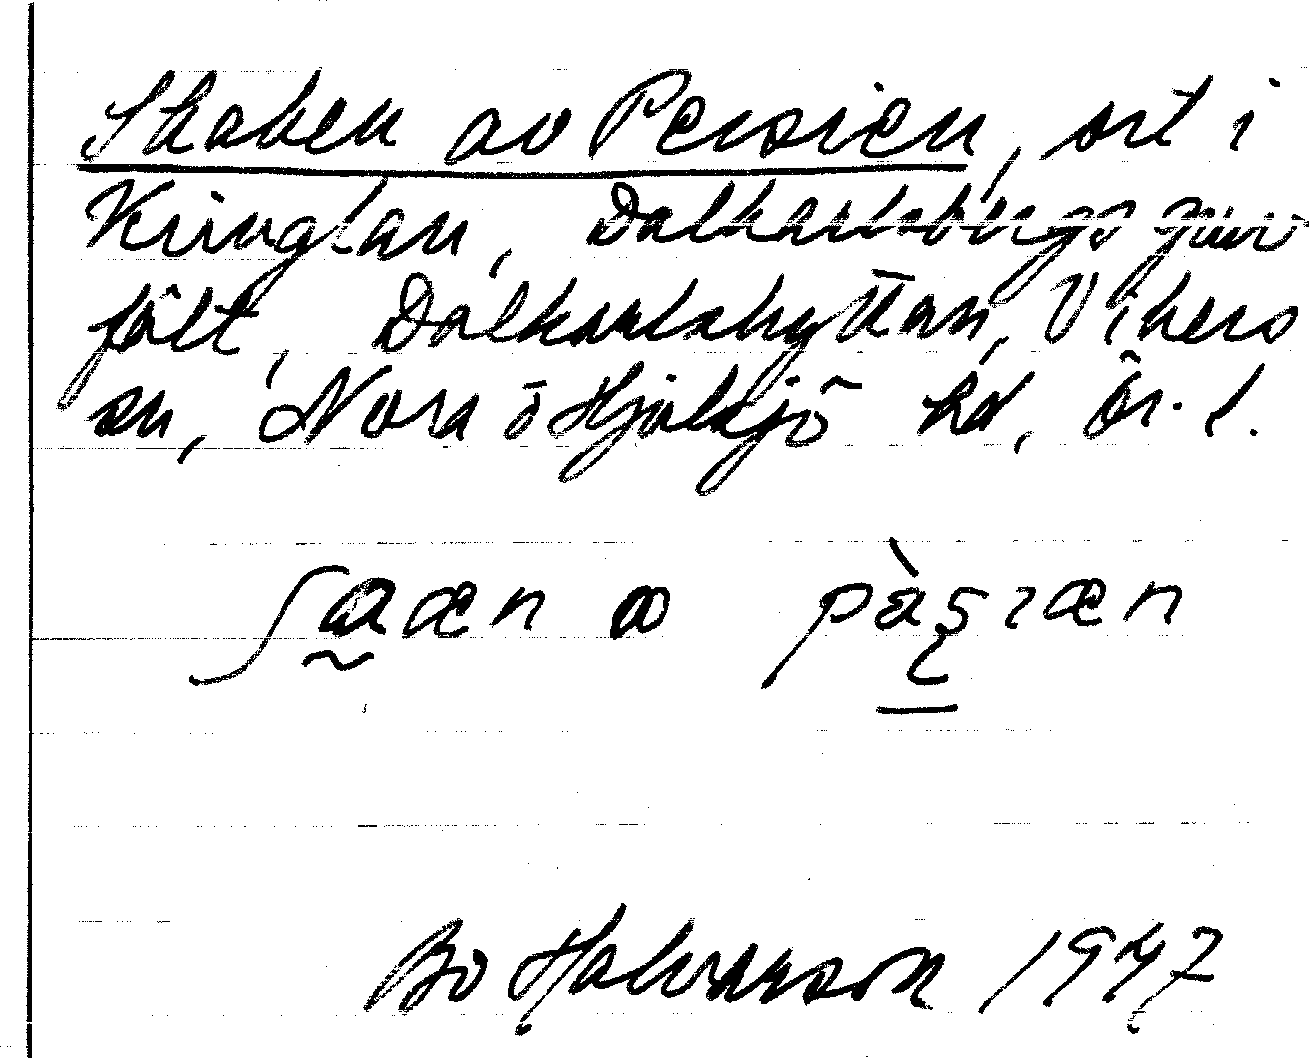 Shahen av Persien, ort i
Kringlan, Dalkarlsbergs gruv
fält, Dalkarlshyttan, Vikers
sn, Nora o Hjulsjö hd, Ör. l.
ʃɑæn ɑ
Bo Halvarson 1947